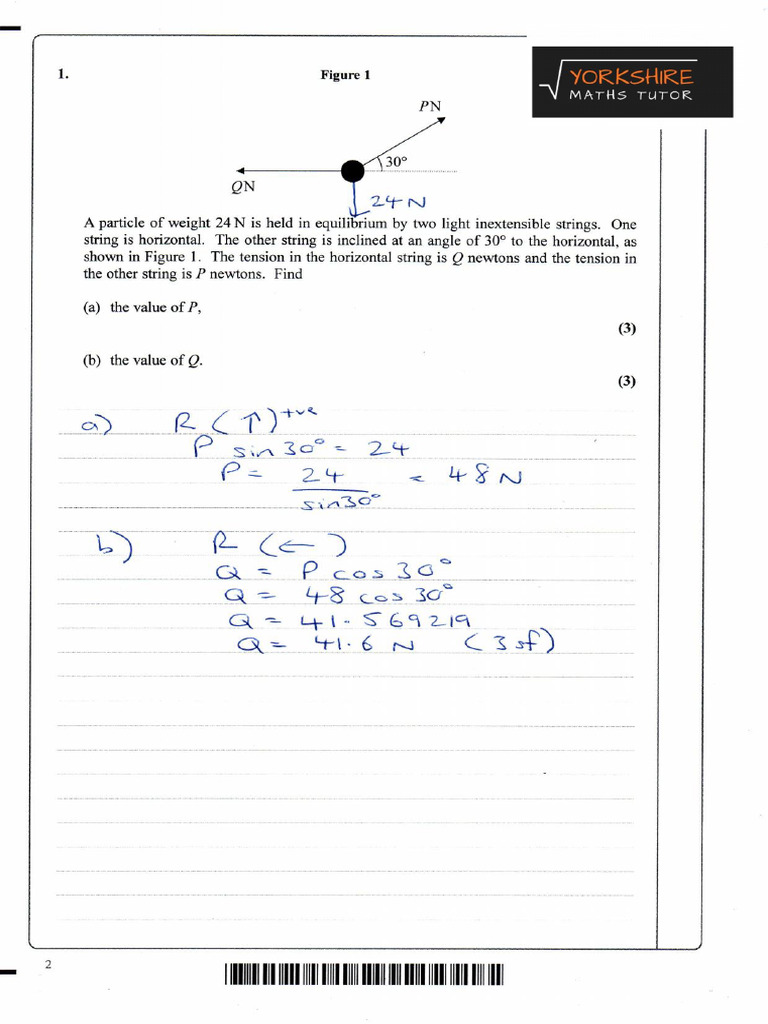 YORKSHIRE
MATHS TUTOR
1.
Figure 1
PN
30°
QN
24 N
A particle of weight 24 N is held in equilibrium by two light inextensible strings. One
string is horizontal. The other string is inclined at an angle of 30° to the horizontal, as
shown in Figure 1. The tension in the horizontal string is Q newtons and the tension in
the other string is P newtons. Find
(a) the value of P,
(3)
(b) the value of Q.
(3)
a) R (↑) +ve
P sin 30° = 24
P = 24 / sin30° = 48 N
b) R (←)
Q = P cos 30°
Q = 48 cos 30°
Q = 41.569219
Q = 41.6 N (3 sf)
2